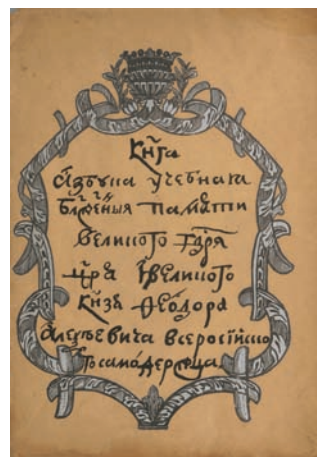 Книга
Азбука учебная
Блаженныя памяти
великого Гдря
Црѧ Ивеликого
Кнзѧ Ѳеодора
Алезѣевича всеросiйско
Го самодержца